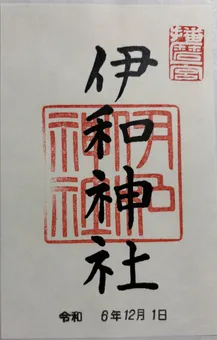 播磨国
伊和神社
伊和
神社
令和 6年12月1日